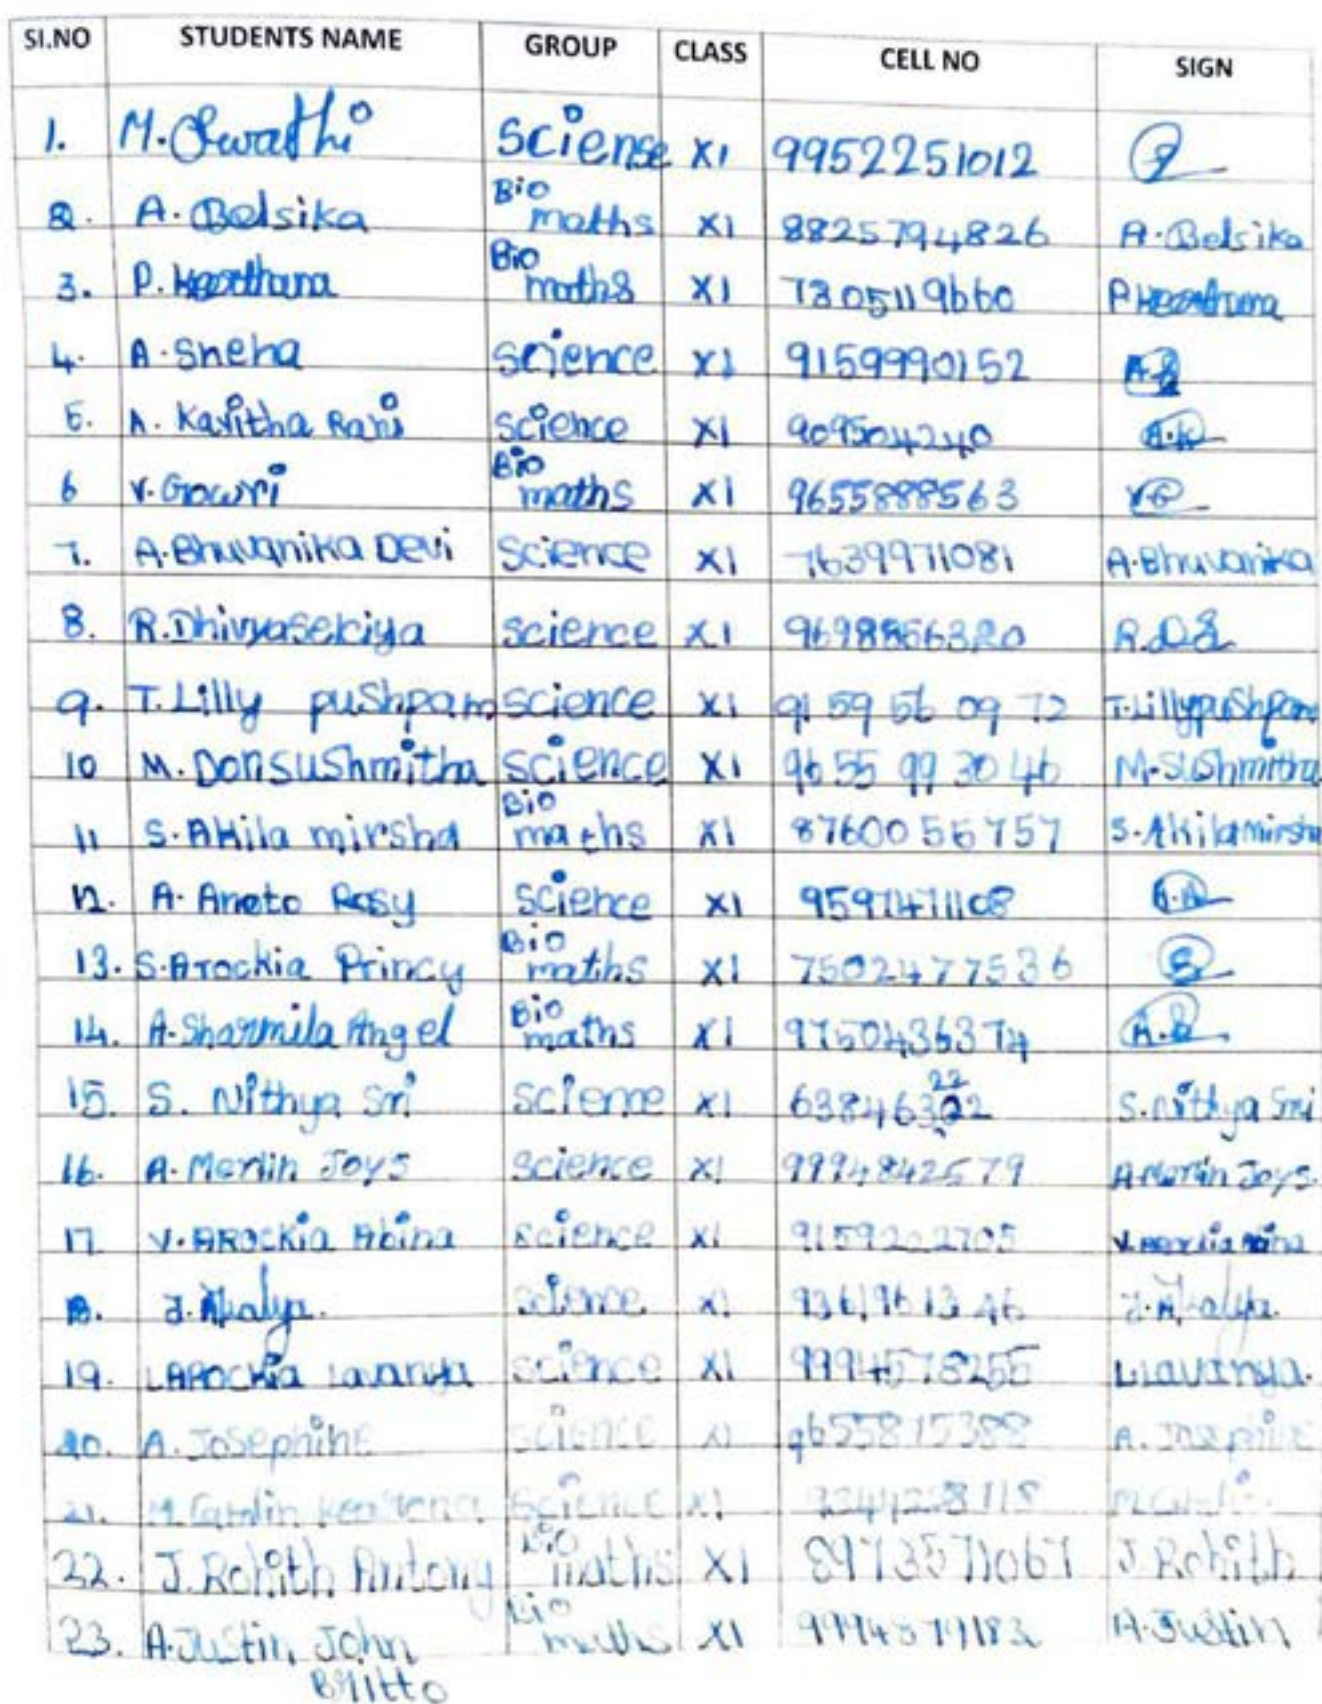 SI.NO STUDENTS NAME GROUP CLASS CELL NO SIGN
1. M. Swathi Sciense XI 9952251012
2. A. Belsika Bio maths XI 8825794826 A. Belsika
3. P. Keerthana Bio maths XI 7305119660 P Keerthana
4. A. Sneha Science XI 9159990152
5. A. Kavitha Rani Science XI 9095042240 A.K
6 V. Gowri Bio maths XI 9655888563 VG
7. A. Bhuvanika Devi Science XI 7639971081 A. Bhuvanika
8. R. Dhivyasekiya Science XI 9698856320 R.D.S
9. T. Lilly puShpam Science XI 91 59 56 09 72 T. LillypuShpam
10 M. DonsuShmitha Science XI 96 55 99 30 46 M. SuShmitha
11 S. Akila mirsha Bio maths XI 8760056757 S. Akilamirsha
12. A. Aneto Rosy Science XI 9597471108
13. S. Arockia Princy Bio maths XI 7502477536 S
14. A. Sharmila Angel Bio maths XI 9750436374 A.S
15. S. Nithya Sri Science XI 638463 22 S. Nithya Sri
16. A. Merlin Joys Science XI 9994842579 A. Merlin Joys.
17 V. ARockia Abina Science XI 9159202705 V. Arockia Abina
18. J. Akalya. Science XI 9361961346 J. Akalya.
19. L AROCKia Lavanya Science XI 9994578255 L Lavanya.
20. A. Josephine Science XI 9655815388 A. Josephine
21. M. Science XI
22. J. Rohith Antony Bio maths XI 8973571067 J. Rohith
23. A. Justin John Bio maths XI A. Justin
Britto